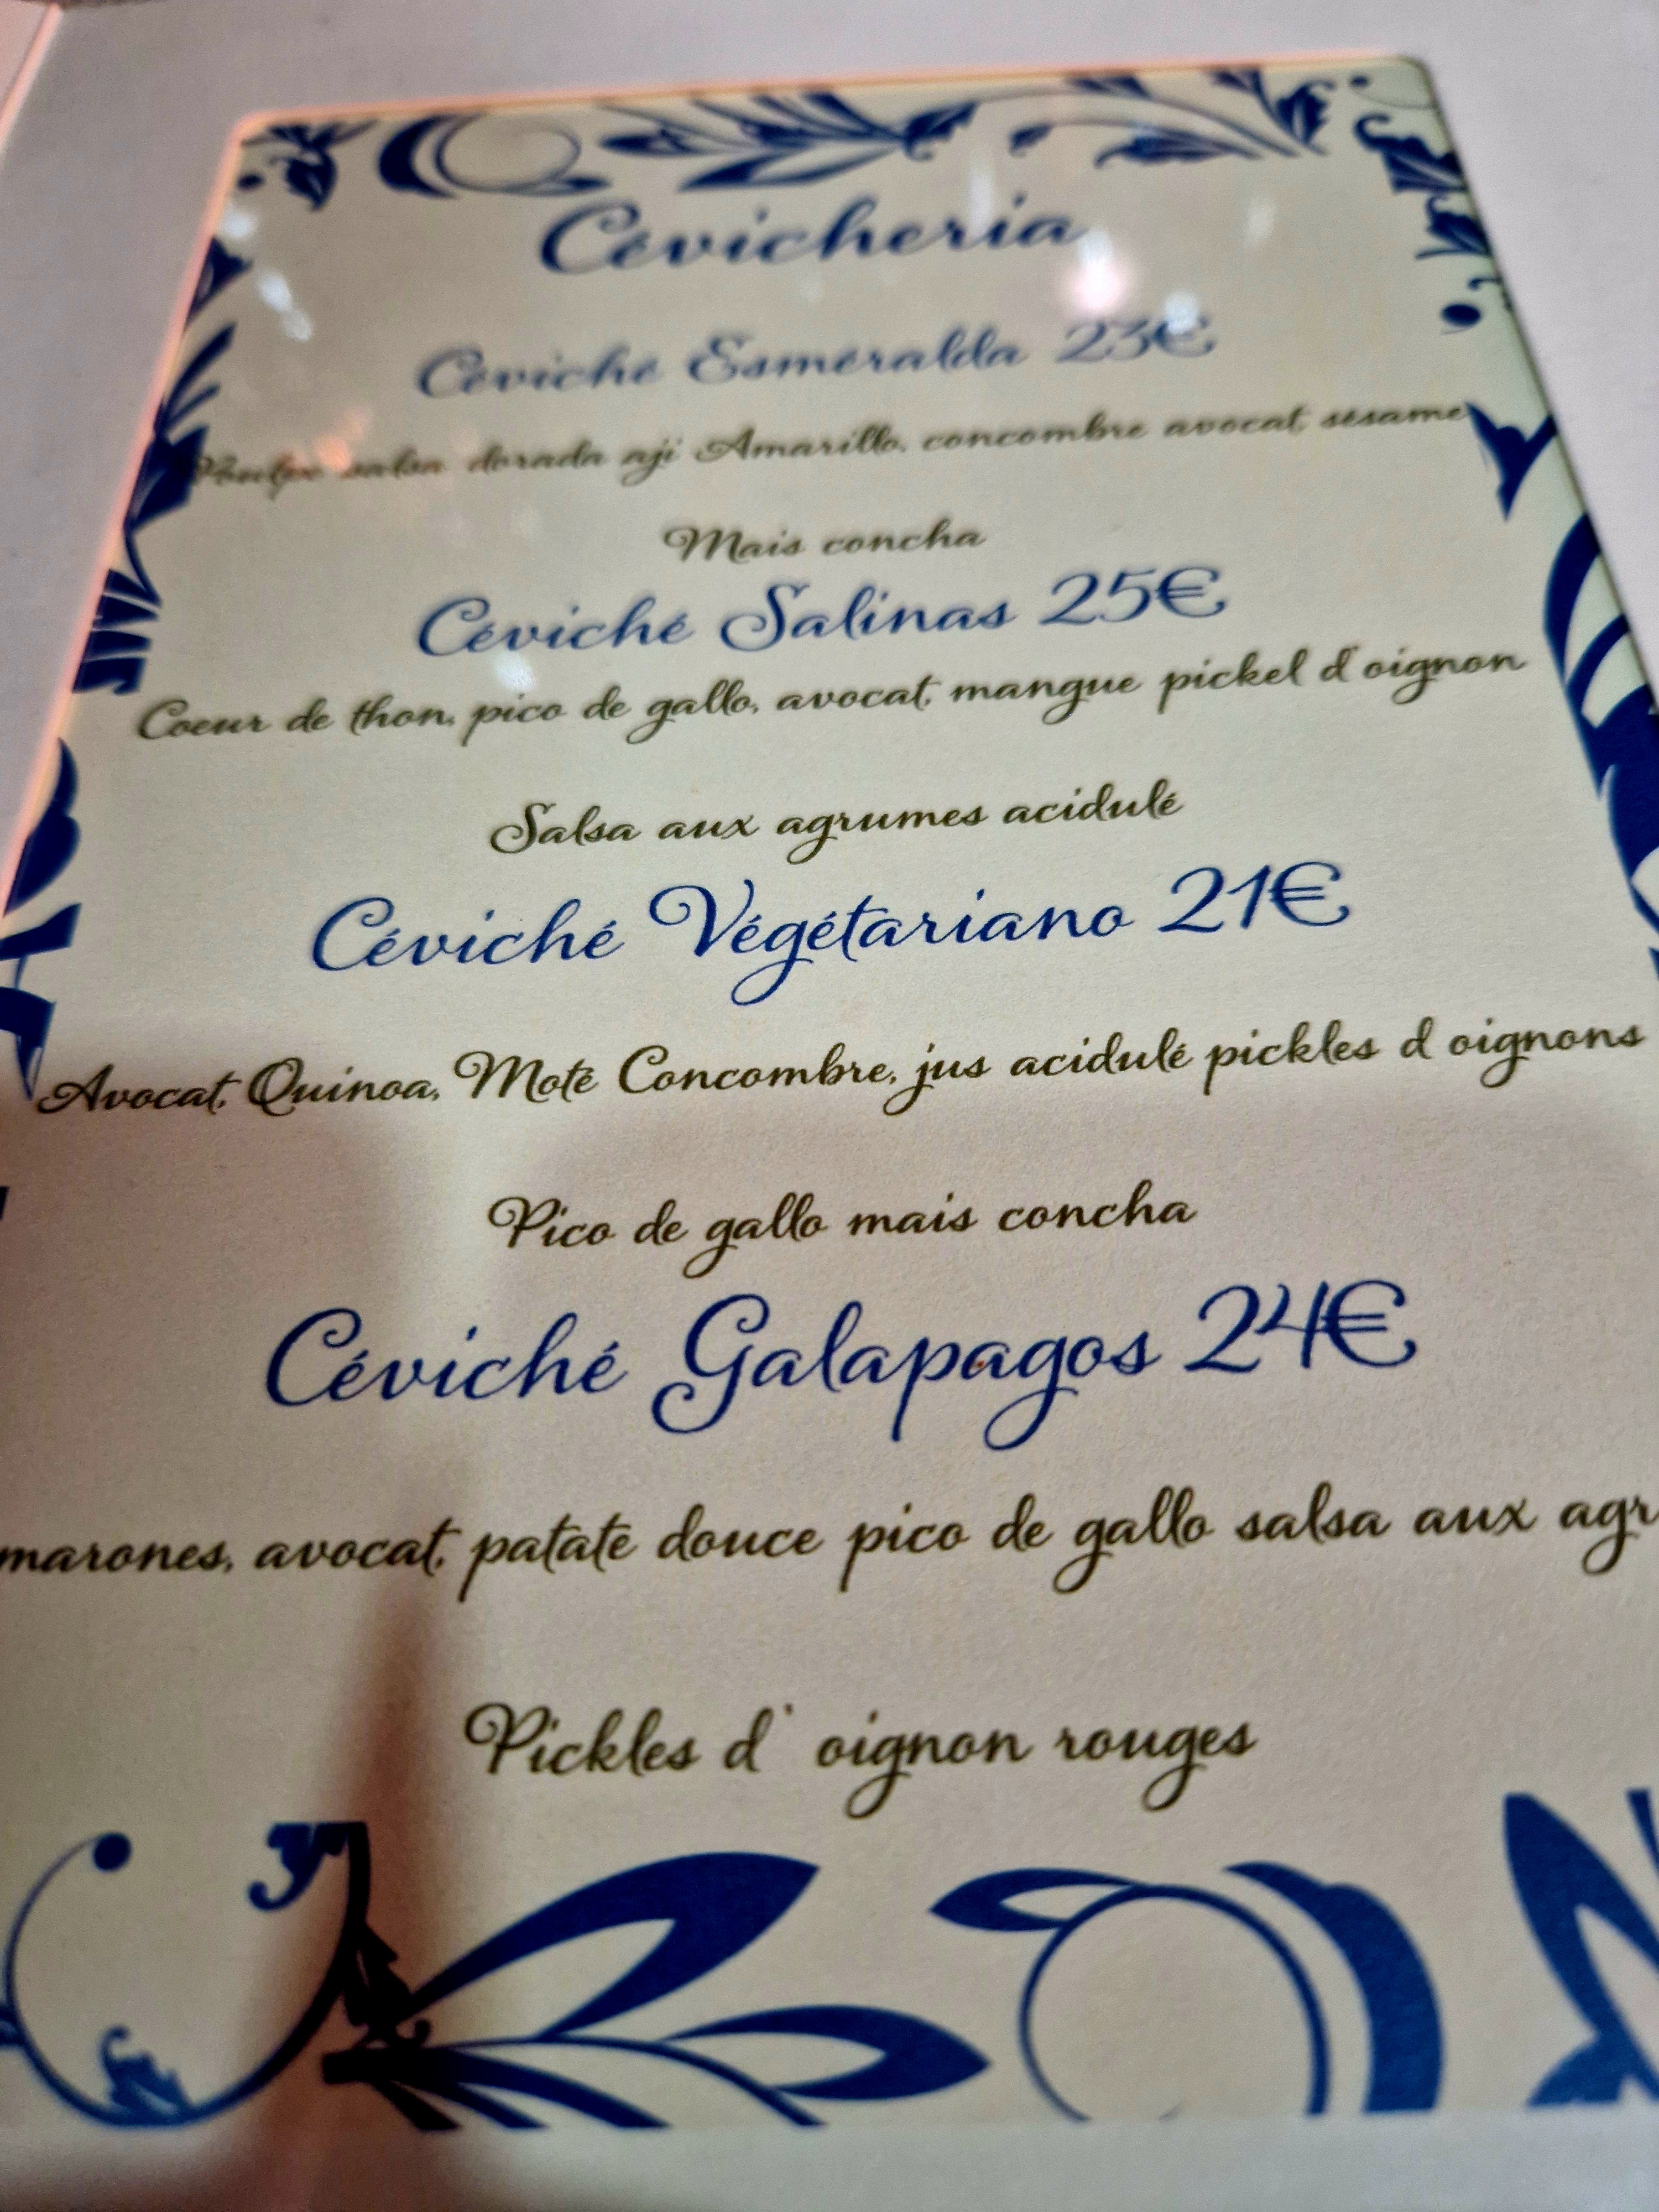 Cévicheria
Céviché Esméralda 23€
Poulpe salsa dorada aji Amarillo, concombre avocat, sésame
Mais concha
Céviché Salinas 25€
Coeur de thon, pico de gallo, avocat, mangue pickel d'oignon
Salsa aux agrumes acidulé
Céviché Végétariano 21€
Avocat, Quinoa, Moté Concombre, jus acidulé pickles d oignons
Pico de gallo mais concha
Céviché Galapagos 24€
marones, avocat, patate douce pico de gallo salsa aux agr
Pickles d' oignon rouges